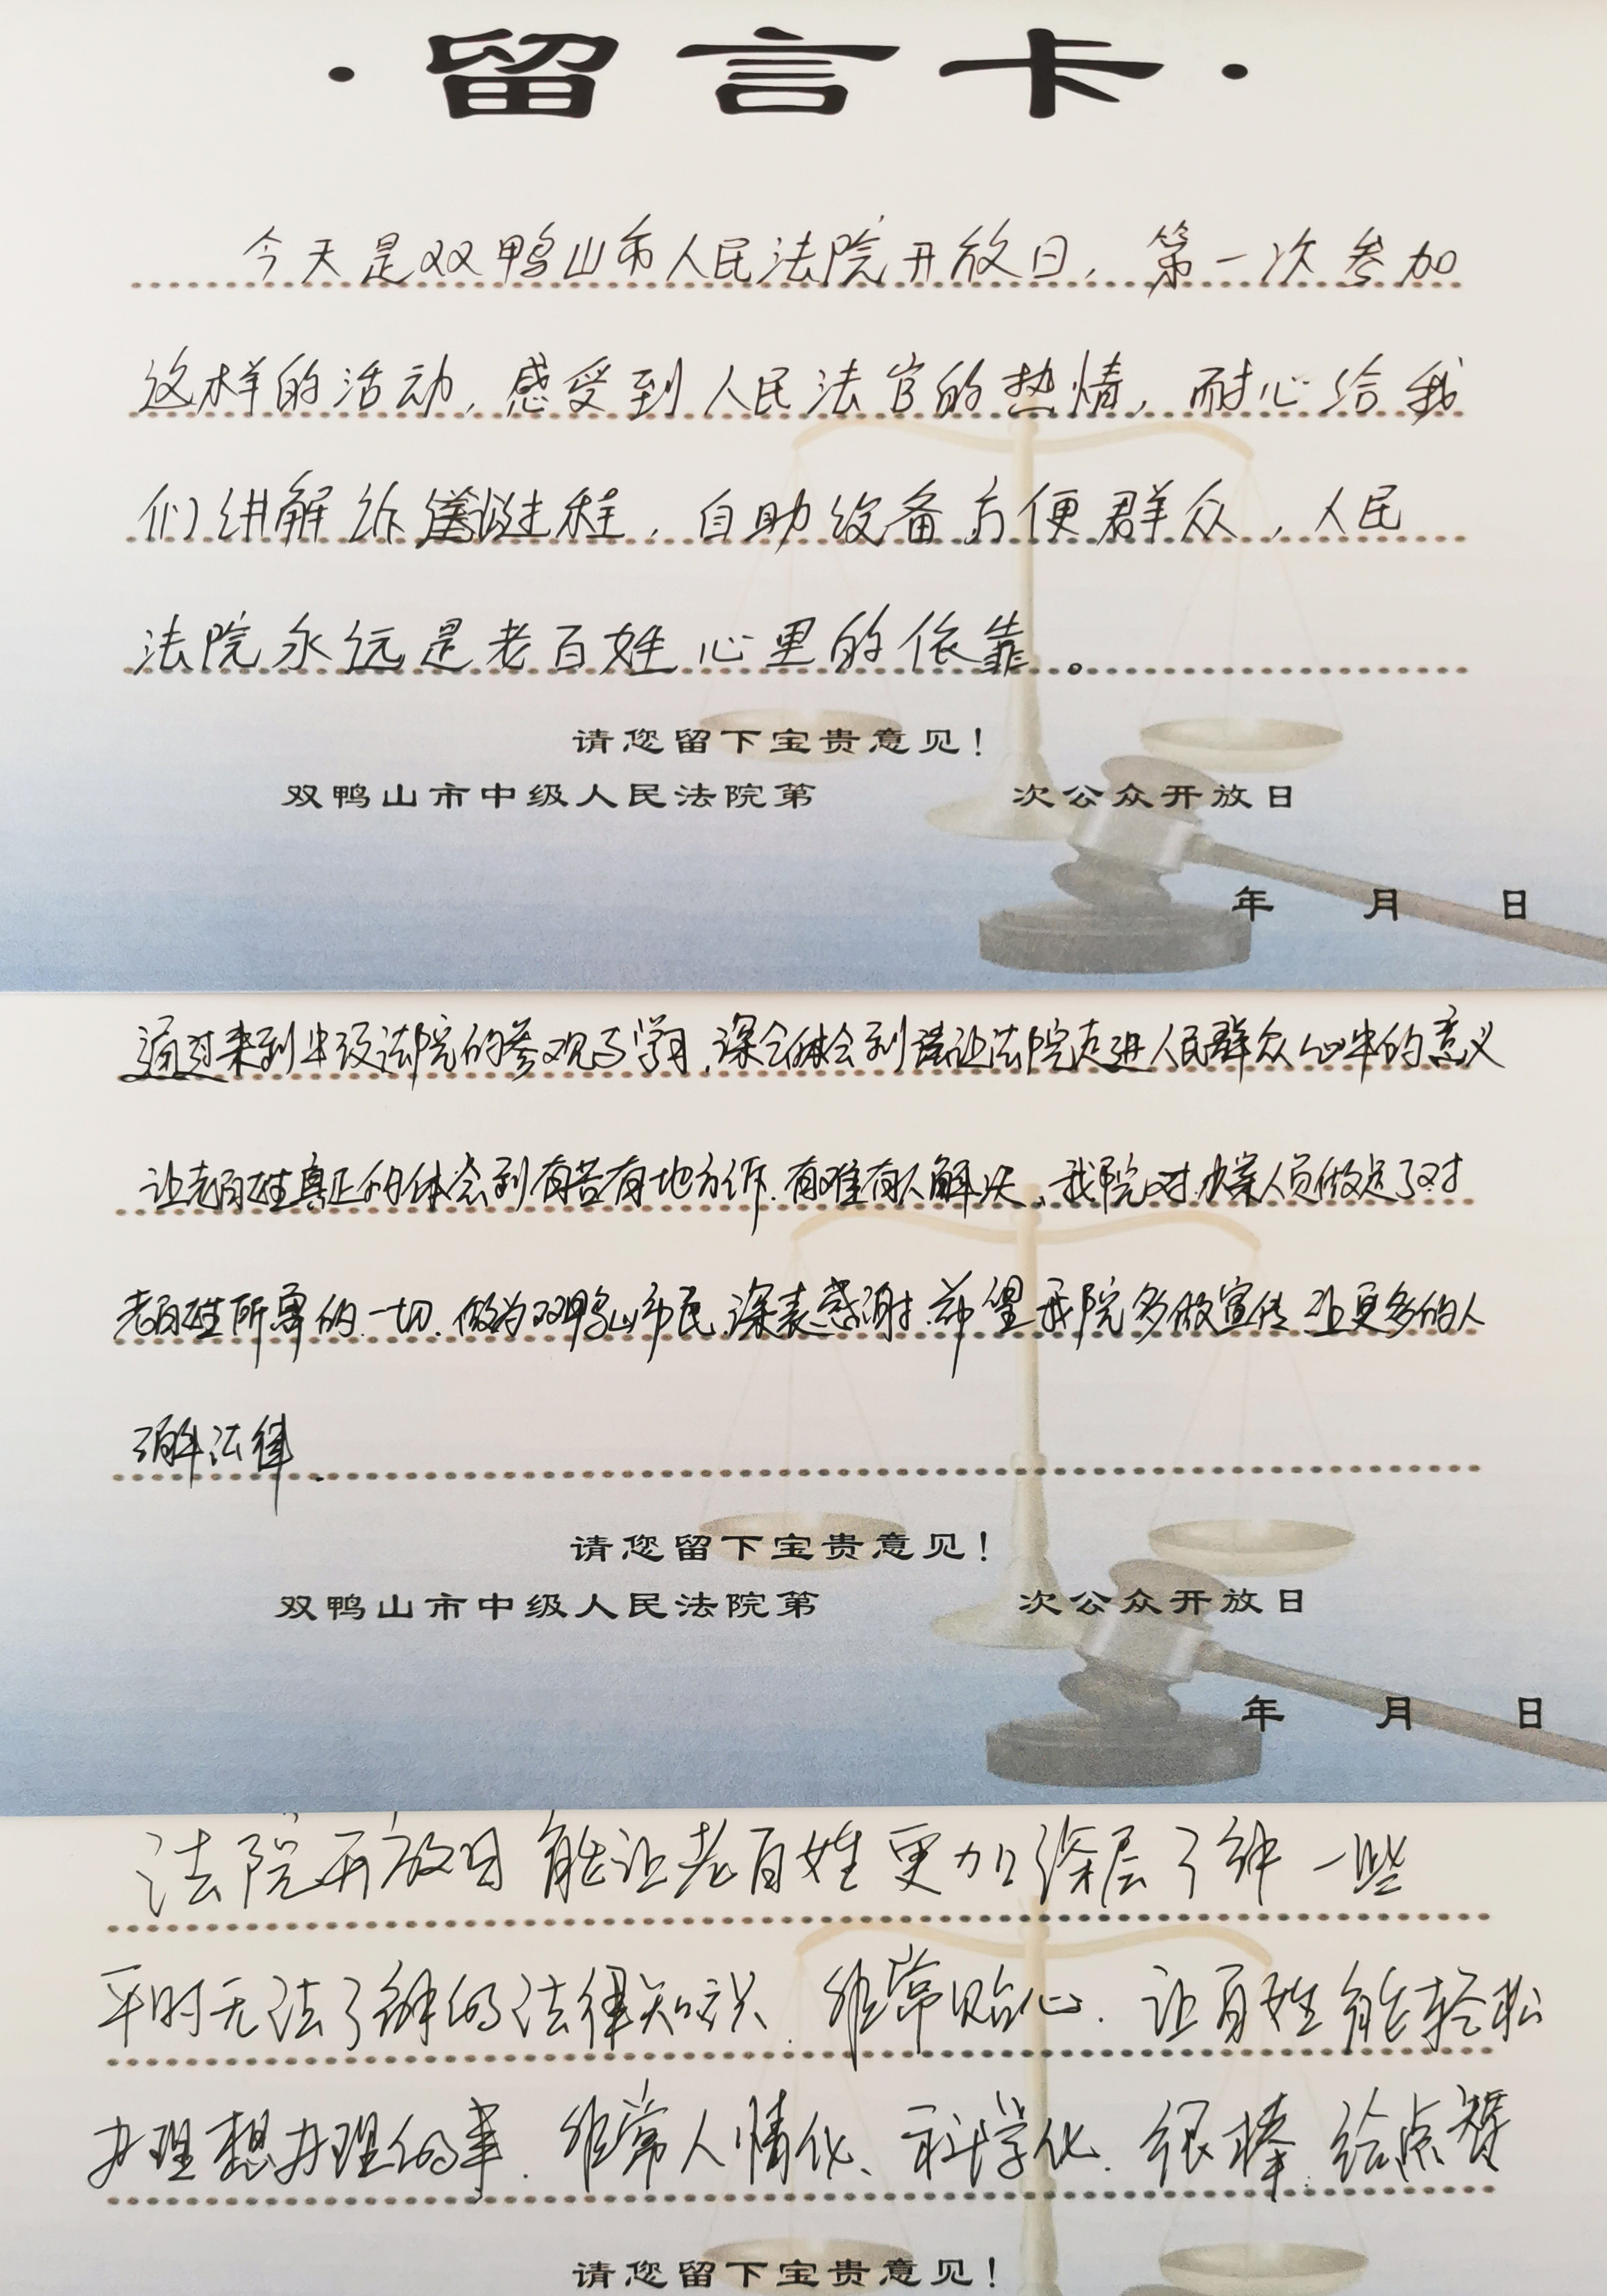 ·留言卡·
今天是双鸭山市人民法院开放日，第一次参加
这样的活动，感受到人民法官的热情，耐心给我
们讲解诉过程，自助设备方便群众，人民
法院永远是老百姓心里的依靠。
请您留下宝贵意见！
双鸭山市中级人民法院第 次公众开放日
年 月 日
通过来到中级法院的参观与学习，深会体会到让法院走进人民群众心中的意义
让老百姓真正的体会到有苦有地方诉，有难有人解决，我院对办案人员做足了对
老百姓所需的一切，做为双鸭山市民，深表感谢，希望我院多做宣传，让更多的人
了解法律.
请您留下宝贵意见！
双鸭山市中级人民法院第 次公众开放日
年 月 日
法院开放日能让老百姓更加深层了解一些
平时无法了解的法律知识，非常贴心，让百姓能轻松
办理想办理的事，非常人情化、科学化，很棒，给点赞
请您留下宝贵意见！